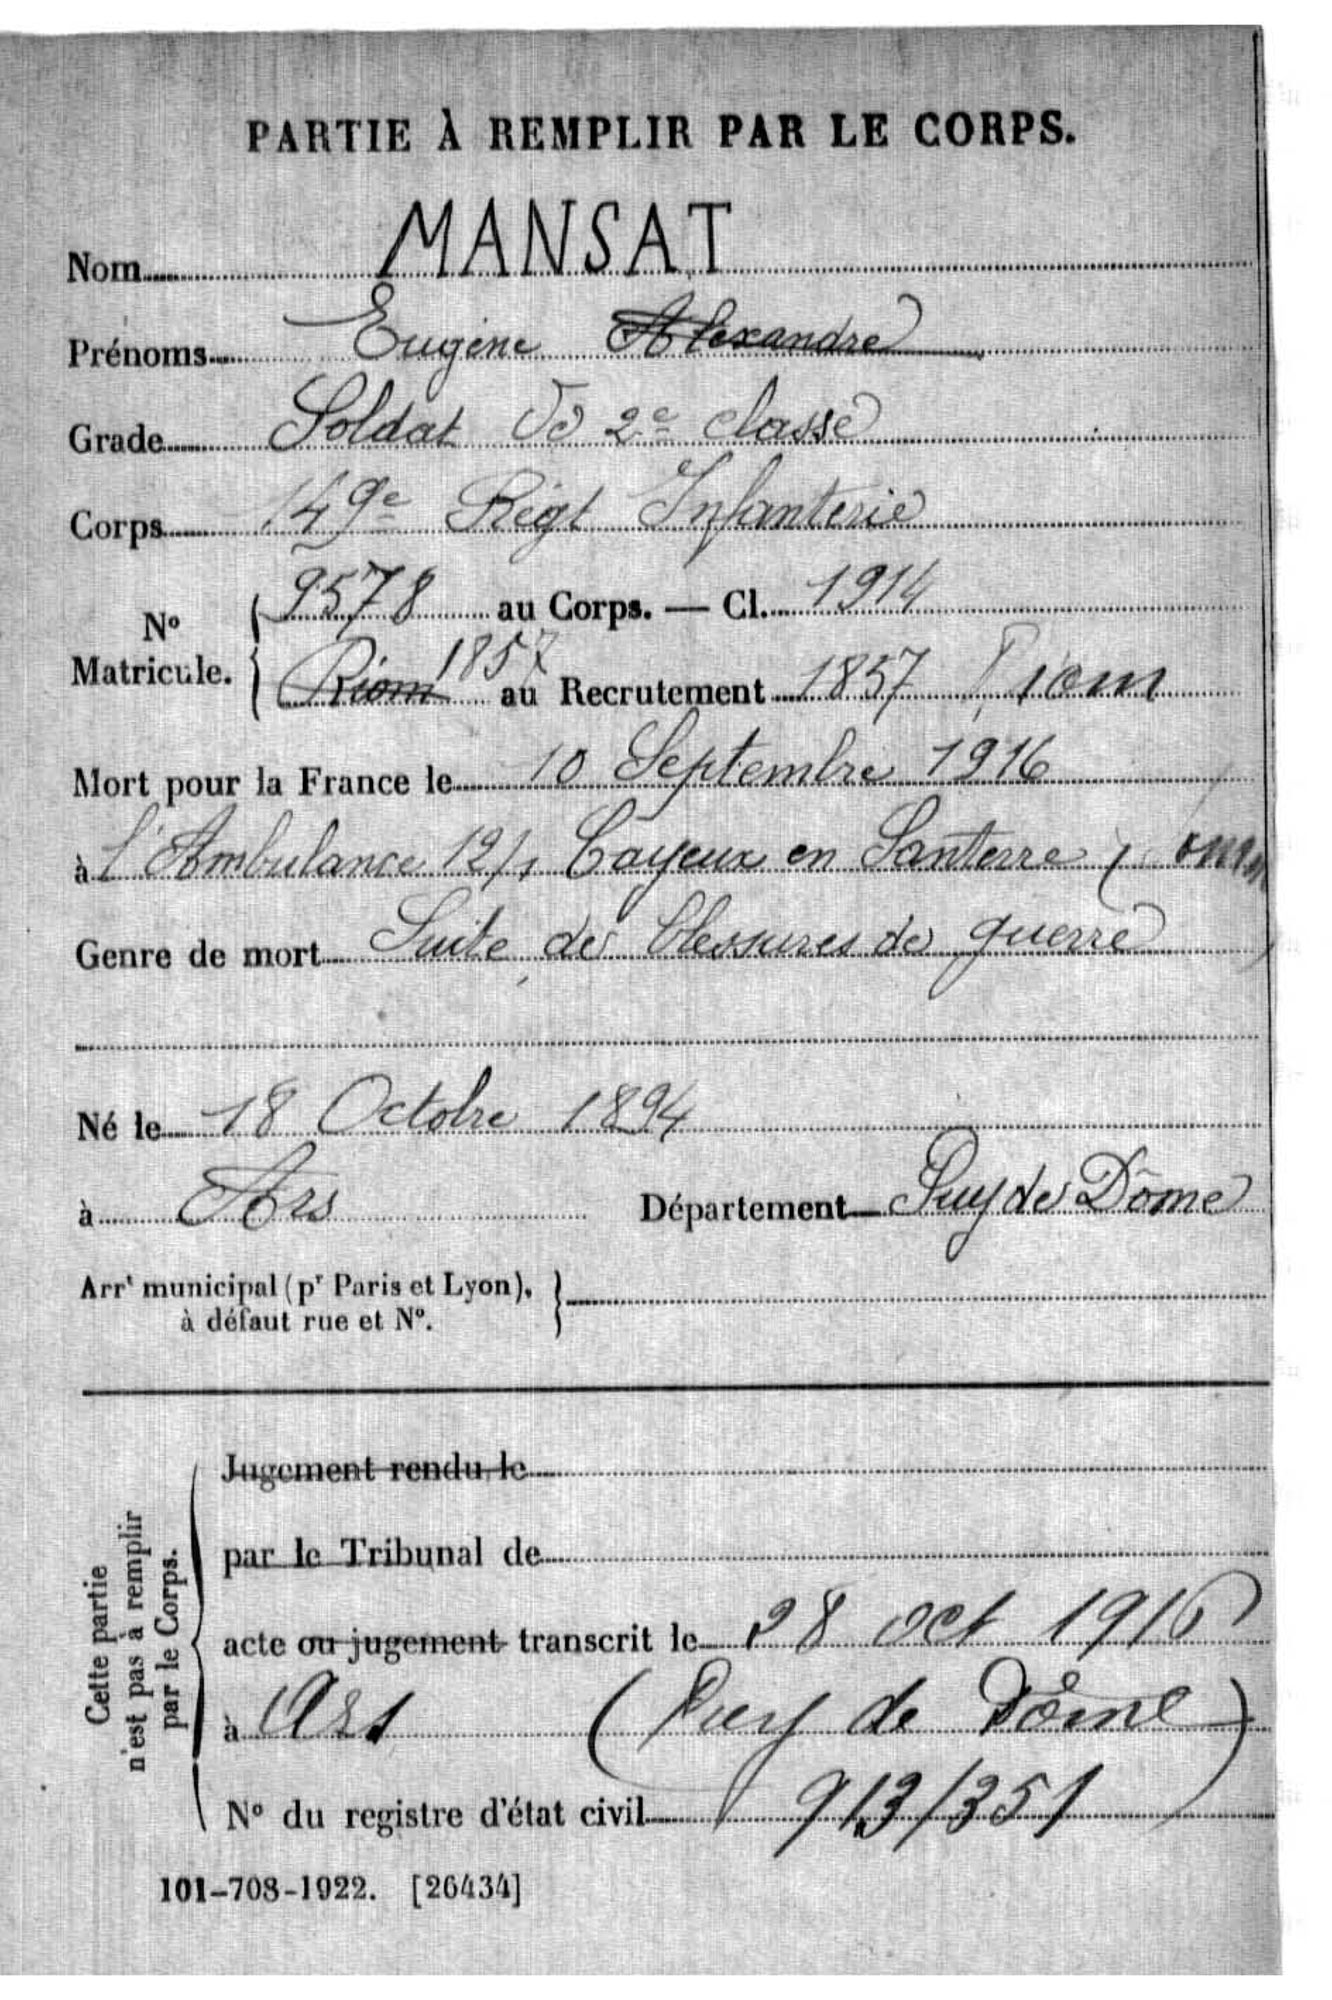 PARTIE À REMPLIR PAR LE CORPS.
Nom MANSAT
Prénoms Eugène Alexandre
Grade Soldat de 2e classe
Corps 149e Régt Infanterie
No Matricule. { 9578 au Corps. — Cl. 1914
1857
Riom au Recrutement 1857 Riom
Mort pour la France le 10 Septembre 1916
à l'Ambulance 12/1 Cayeux en Santerre (
Genre de mort Suite de blessures de guerre
Né le 18 Octobre 1894
à Ars Département Puy de Dôme
Arrt municipal (pr Paris et Lyon), }
à défaut rue et No.
Cette partie
n'est pas à remplir
par le Corps.
Jugement rendu le
par le Tribunal de
acte ou jugement transcrit le 28 oct 1916
à Ars (Puy de Dôme)
No du registre d'état civil 913/351
101-708-1922. [26434]